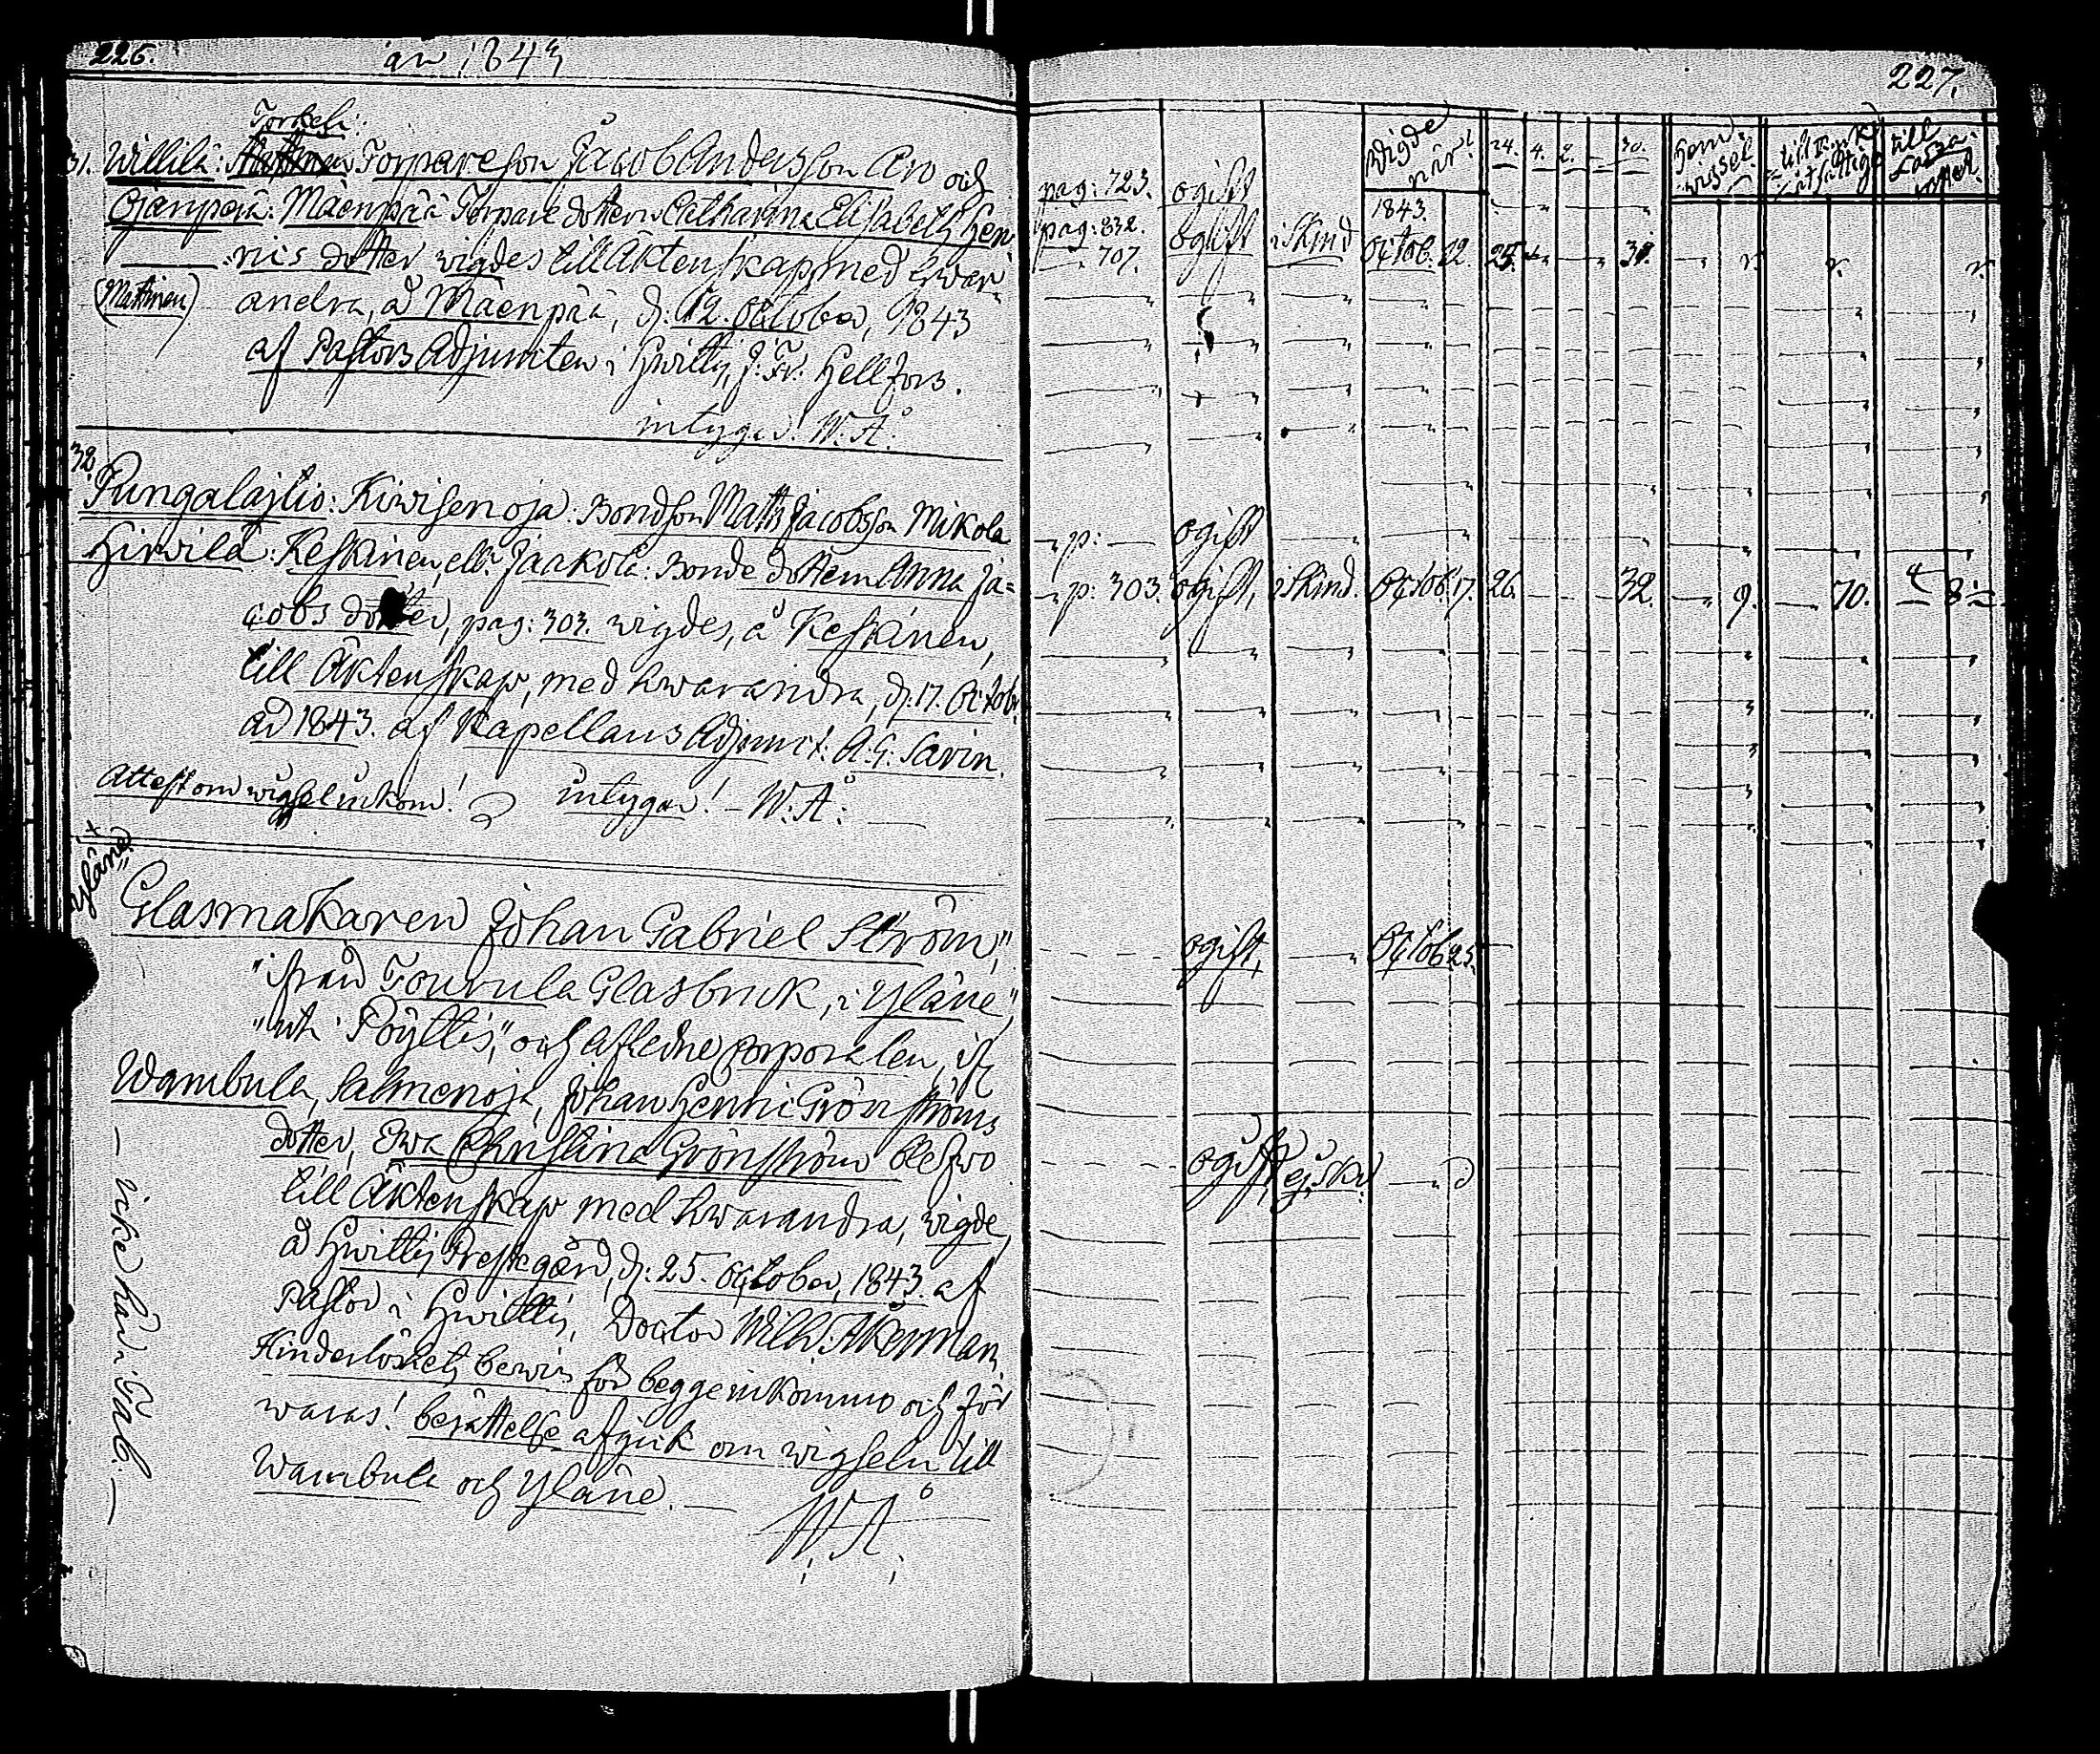 226.
år 1843
Torkeli:
31. Willilä: Torpareson Jacob Andersson Aro och
Ojänperä: Mäenpää Torpare dottern Catharina Elisabeth Hen-
rics dotter wigdes till Äktenskap med hwar-
(Mattinen) andra, å Mäenpää, d: 12. October, 1843
af Pastors Adjuncten i Hwittis, J: Fr: Hellfors.
intygar! W. Å.
32. Pungalajtio: Kiwisenoja: Bondson Matts Jacobsson Mikola
Hirwilä: Keskinen, ell: Jaakola: Bonde dottern Anna Ja-
cobs dotter, pag: 303. wigdes, å Keskinen,
till Äktenskap, med hwarandra, d: 17. Octob:
åd 1843. af Kapellans Adjunct: A: G: Savin.
Attest om wigsel inkom! intygar! – W. Å:
Yläne
Glasmakaren Johan Gabriel Ström,"
"ifrån Tourula Glasbruk, i Yläne,"
"uti Pöyttis," och Aflidne Corporalen, i
Wambula, Salmenoja, Johan Henric Grönströms
dotter, Ewa Christina Grönström blefwo
till Äktenskap med hwarandra, wigde,
å Hwittis Prestegård, d: 25. October, 1843. af
Pastor i Hwittis, Doctor Wilh: Åkerman,
Hinderlöshets bewis för begge inkommo och för-
waras! berättelse afgick om wigseln till
Wambula och Yläne. —
W. Å.
— icke här i Tab. —
227.
Wigde när? 24. 4. 2. — 30. till
pag: 723. ogift
1843.
pag: 832. ogift i stånd Octob. 12. 25.
— 707.
— p: — ogift
— p: 303. ogift, i stånd. Octob: 17. 26. 32. — 9. — 70. 8
ogift, — Octob: 25.
ogift, —